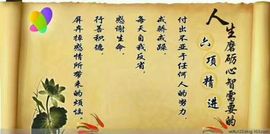 人生磨砺心智需要的
六项精进
付出不亚于任何人的努力。
戒骄戒躁。
每天自我反省。
感谢生命。
行善积德。
屏弃掉感情所带来的烦恼。